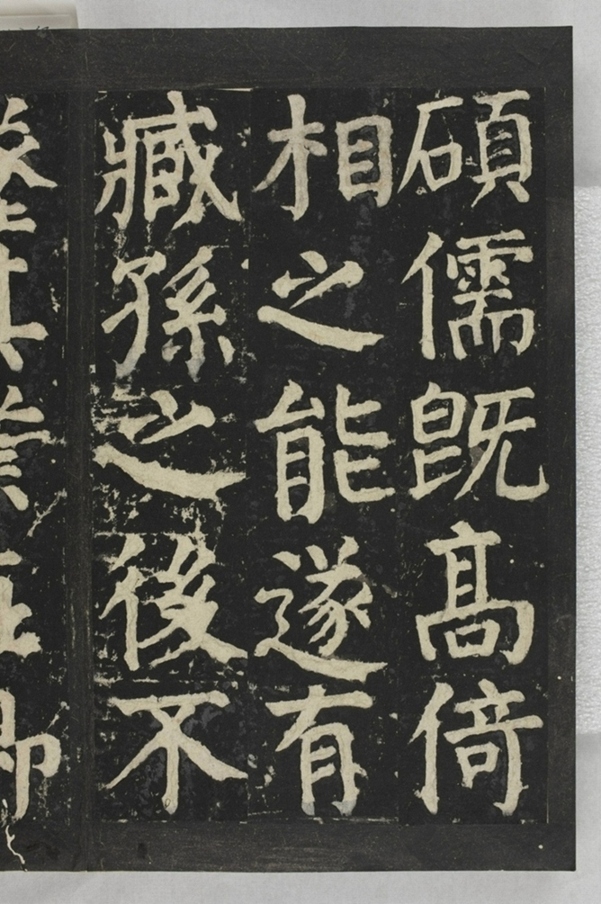 碩儒既高倚
相之能遂有
臧孫之後不